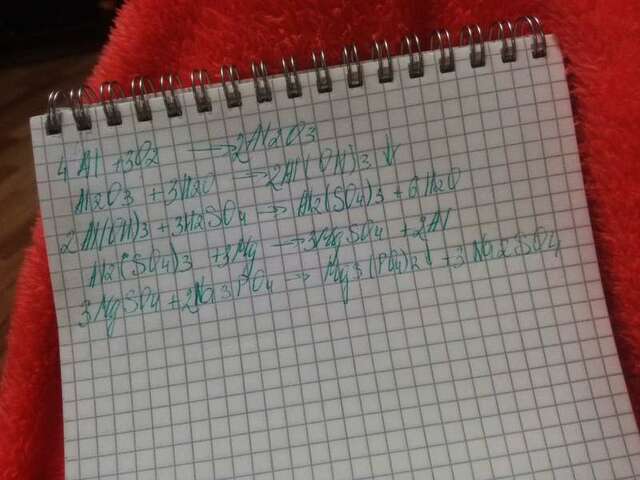 4Al + 3O2 → 2Al2O3
Al2O3 + 3H2O → 2Al(OH)3 ↓
2Al(OH)3 + 3H2SO4 → Al2(SO4)3 + 6H2O
Al2(SO4)3 + 3Mg → 3MgSO4 + 2Al
3MgSO4 + 2Na3PO4 → Mg3(PO4)2↓ + 3Na2SO4